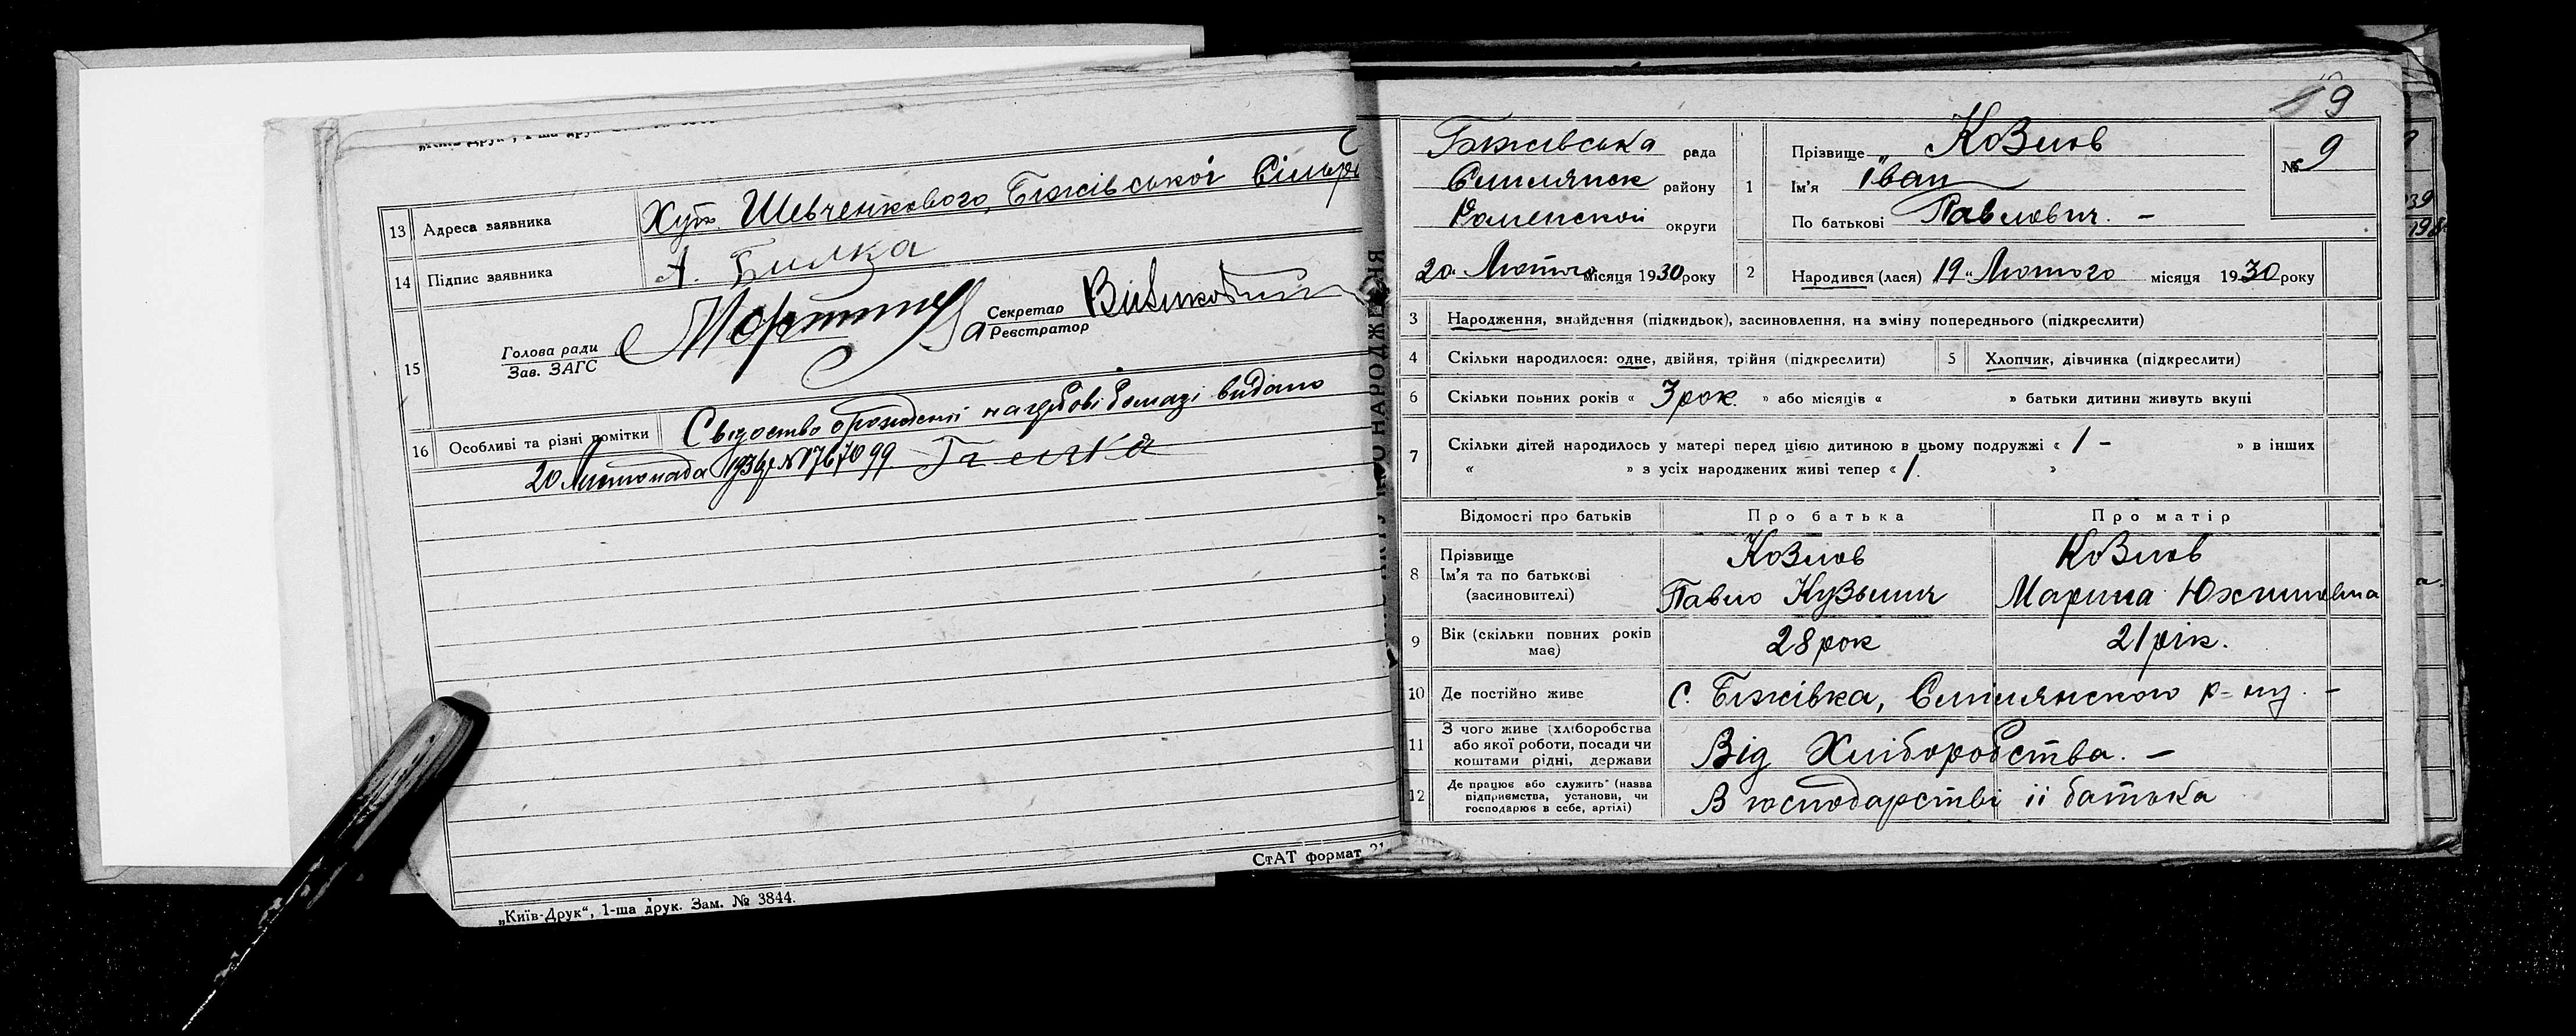 13 Адреса заявника Хут. Шевченкового, Біжівської Сільр
14 Підпис заявника А. Билка
15 Голова ради
Зав. ЗАГС
Секретар
Реєстратор
16 Особливі та різні помітки Свідоство о рожденії на гербові бомазі видано
20 Листопада 1936р №
СтАТ формат 21
„Київ-Друк“, 1-ша друк. Зам. № 3844.
9
Біжівська рада
Смілянск району
Роменской округи
20 Лютого місяця 1930 року
1 Прізвище Козлов
Ім'я Іван
По батькові Павлович. –
№ 9
2 Народився (лася) 19 „ Лютого місяця 1930 року
3 Народження, знайдення (підкидьок), засиновлення, на зміну попереднього (підкреслити)
4 Скільки народилося: одне, двійня, трійня (підкреслити)
5 Хлопчик, дівчинка (підкреслити)
6 Скільки повних років « 3 рок » або місяців « » батьки дитини живуть вкупі
7 Скільки дітей народилось у матері перед цією дитиною в цьому подружжі « 1 – » в інших
« » з усіх народжених живі тепер « 1. »
Відомості про батьків Про батька Про матір
8 Прізвище Козлов Козлов
Ім'я та по батькові
(засиновителі) Павло Кузьмич Марина Юхимовна
9 Вік (скільки повних років
має) 28 рок 21 рік.
10 Де постійно живе С. Біжівка, Смілянского р-ну. –
11 З чого живе (хліборобства
або якої роботи, посади чи
коштами рідні, держави Від Хліборобства. –
12 Де працює або служить (назва
підприємства, установи, чи
господарює в себе, артілі) В господарстві її батька